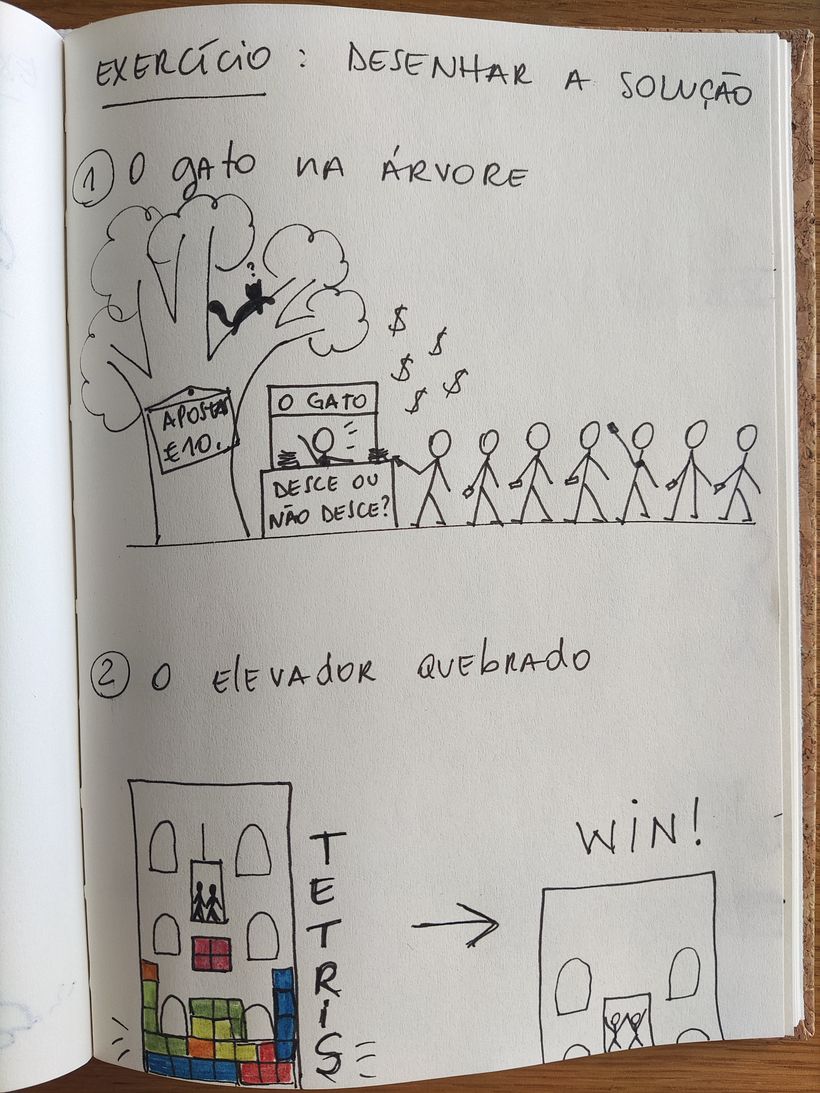 EXERCÍCIO : DESENHAR A SOLUÇÃO
1 O gATO NA ÁRVORE
?
$ $ $ $ $
APOSTA
€10.
O GATO
DESCE OU
NÃO DESCE?
2 O ElEVAdOR QUEbRAdO
TETRiS
WiN!